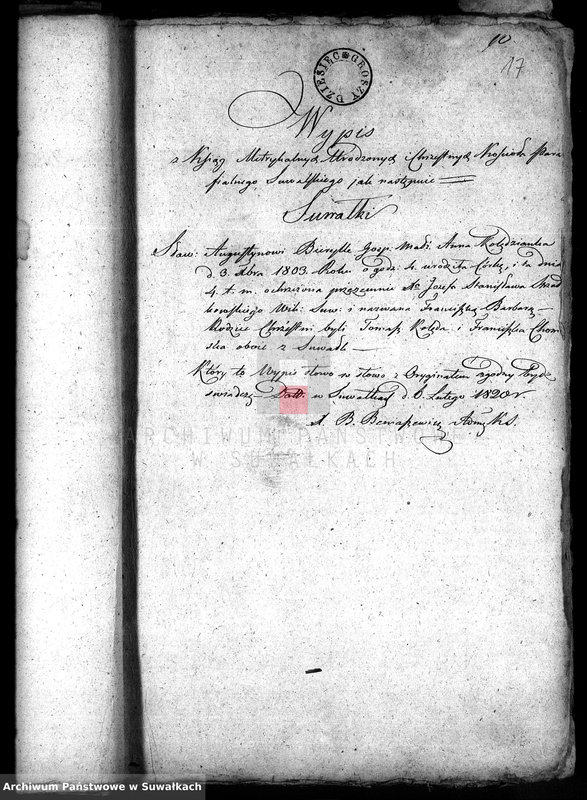 10
17
DZIESIĘC GROSZY
Wypis
z Xiąg Metrykalnych Urodzonych Chrzestnych Kościoła Para
fialnego Suwalskiego jak następuie
Suwałki
Suw: Augustynowi Gosp. Anna Kolędzianka
d. 3. 1803. Roku o godz. 4. urodziła Córkę, i ta dnia
4. t. m. ochrzczona przezemnie Xa Jozefa Stanisława
Wik: Suw: i nazwana Franciszka Barbara
Rodzice Chrzestni byli Tomasz Kolęda i Franciszka
oboie z Suwałk
Który to Wypis słowo w słowo z Oryginałem zgodny bydź
świadczę Datt. w Suwałkach d. 6. Lutego 1820 r
X. B.
ARCHIWUM PAŃSTWOWE
W SUWAŁKACH
Archiwum Państwowe w Suwałkach